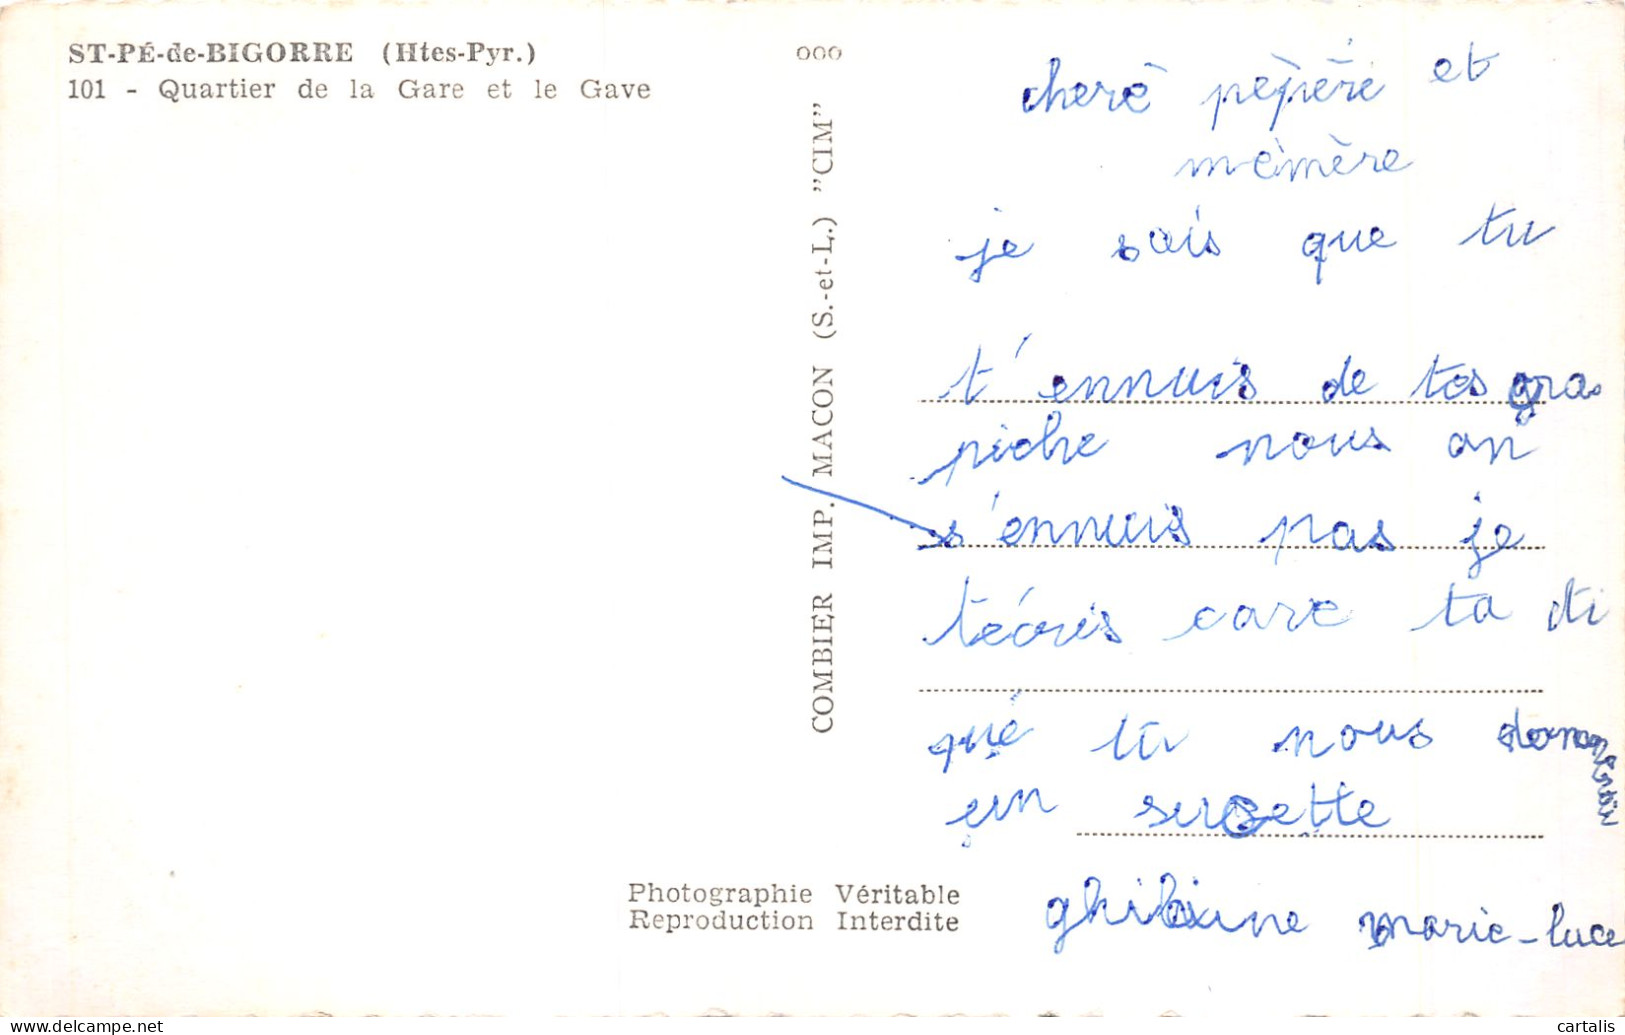 ST-PÉ-de-BIGORRE (Htes-Pyr.)
101 - Quartier de la Gare et le Gave
COMBIER IMP. MACON (S.-et-L.) "CIM"
Photographie Véritable
Reproduction Interdite
cherè pèpère et
mèmère
je sais que tu
t'ennuis de tes gra
piche nous on
s'ennuis pas je
técris care ta di
qué tu nous
un sucette
ghilaine marie-luce
cartalis